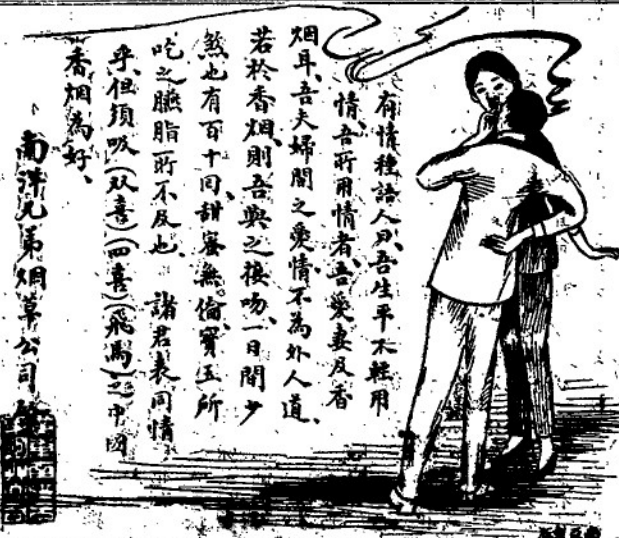 有情種語人曰、吾生平不輕用
情、吾所用情者、吾愛妻及香
烟耳、吾夫婦間之愛情、不為外人道、
若於香烟、則吾與之接吻、一日間少
煞也有百十回、甜蜜無倫、寶玉所
吃之臙脂所不及也、諸君表同情
乎、但須吸(双喜)(四喜)(飛馬)之中國
香烟為好、
南洋兄弟烟草公司